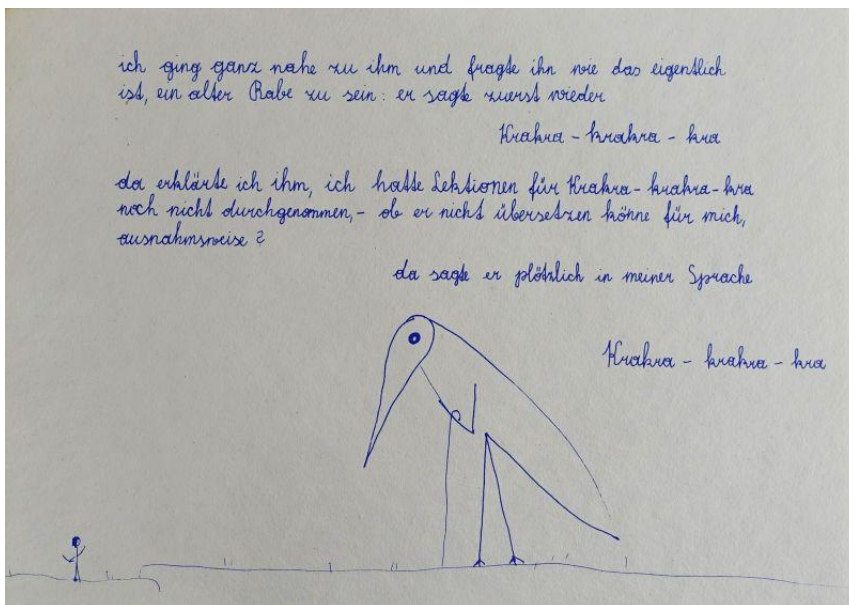 ich ging ganz nahe zu ihm und fragte ihn wie das eigentlich
ist, ein alter Rabe zu sein: er sagte zuerst wieder
Krakra - krakra - kra
da erklärte ich ihm, ich hatte Lektionen für Krakra-krakra-kra
noch nicht durchgenommen,- ob er nicht übersetzen könne für mich,
ausnahmsweise?
da sagte er plötzlich in meiner Sprache
Krakra - krakra - kra